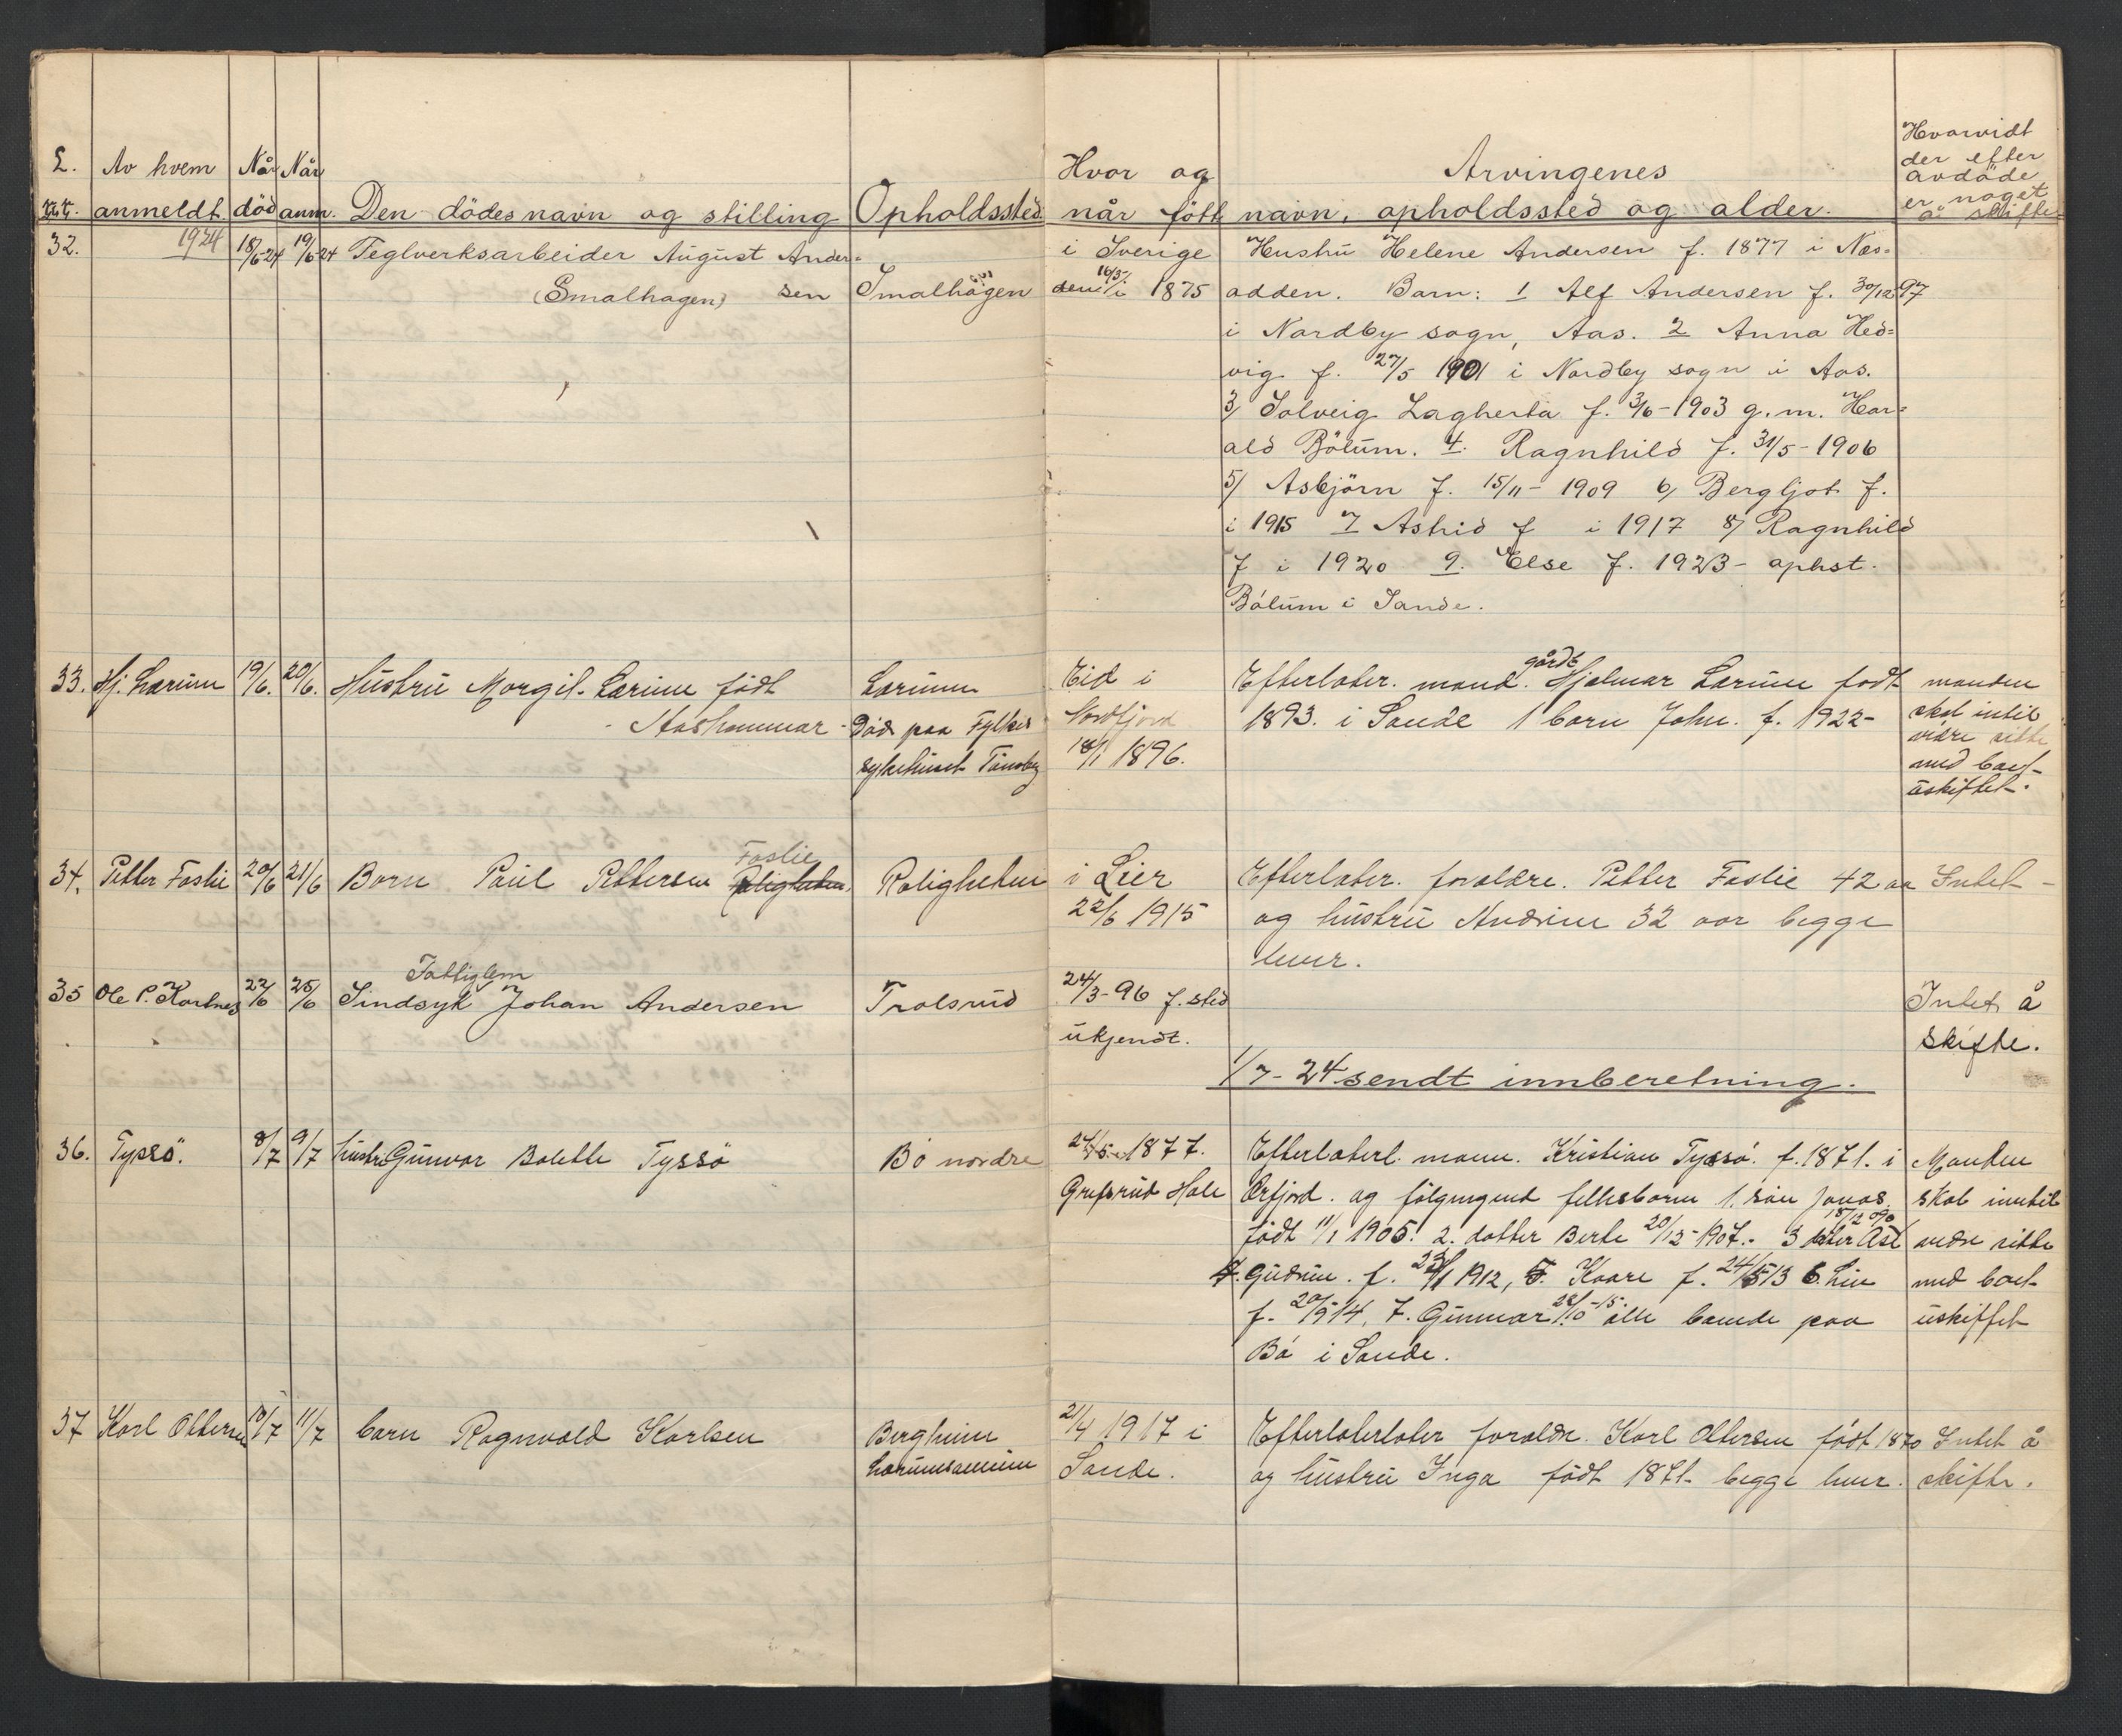 L. Av hvem Når Når Hvor og Arvingenes Hvorvidt der efter avdöde er noget å skifte
anmeldt. död anm. Den dödes navn og stilling Opholdssted. når födt navn, opholdssted og alder.
32. 1924 18/6-24 19/6-24 Teglverksarbeider August Ander= i Sverige Hustru Helene Andersen f. 1877 i Næs=
(Smalhagen) sen Smalhagen den 16/3 1875 odden. Barn: 1 Alf Andersen f. 30/12 97
i Nordby sogn, Aas. 2 Anna Hed=
vig f. 27/5 1901 i Nordby sogn i Aas.
3, Solveig Lagherta f. 3/6-1903 g. m. Har=
ald Bölum. 4. Ragnhild f. 31/5-1906
5/ Asbjörn f. 15/11-1909 6, Bergljot f.
i 1915 7 Astrid f i 1917 8/ Ragnhild
f i 1920 9. Else f. 1923- ophst.
Bölum i Sande.
33. Hj. Lærum 19/6. 20/6. Hustru Margit Lærum födt Lærum Eid i Efterlater. mand. gårdb Hjalmar Lærum födt manden
Aashammar Död paa Fylkes Nordfjord 1893. i Sande 1 barn John. f. 1922- skal intil
sykehuset Tönsberg 18/1 1896. vidre sitte
med boet
uskiftet.
34. Petter Foslie 20/6 21/6 Barn Paul Pettersen Foslie Roligheten i Lier Efterlater. foreldre. Petter Foslie 42 aa Intet
22/6 1915 og hustru Andrine 32 aar begge
lever.
35 Ole P. Kortnes 22/6 25/6 Sindsyk Fattiglem Johan Andersen Trolsrud 24/3-96 f. sted Intet å
ukjendt. skifte.
1/7-24 sendt innberetning.
36. Tyssö. 8/7 9/7 hustru Gunvor Bolette Tyssö Bö nordre 24/5 1877. Efterlaterl. mann. Kristian Tyssö. f. 1871. i Manden
Grefsrud Hole Örfjord. og fölgengend fellesbarn 1. sön Jonas skal inntil
födt 11/1 1905. 2. datter Berte 20/12-1907.- 3 datter Åse 18/12 09 vidre sitte
4. Gudrun. f. 23/1 1912, 5. Kaare f. 24/5 13 6. Liv med boet
f. 20/9 14, 7. Gunnar 28/10-15. alle boende paa uskiftet
Bö i Sande.
37 Karl Ottersen 10/7 11/7 barn Ragnvald Karlsen Bergheim 21/4 1917 i Efterlaterlater foreldre. Karl Ottersen födt 1870 Intet å
Sande. og hustru Inga födt 1871 begge lever. skifte.